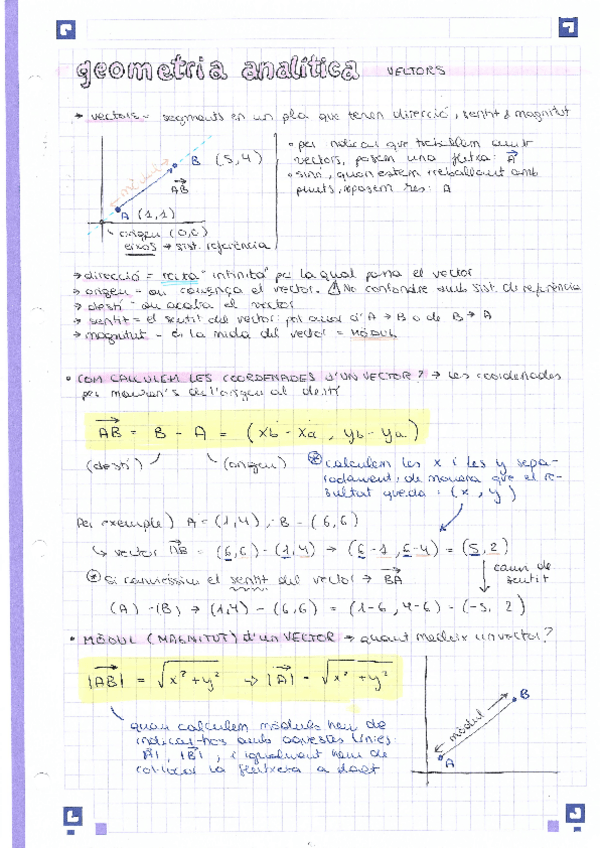 geometria analítica VECTORS
→ vectors - segments en un pla que tenen direcció, sentit i magnitut
B (5,4)
mòdul
AB
A (1,1)
origen (0,0)
eixos → sist. referència
• per indicar que treballem amb
vectors, posem una fletxa: A
• sinó, quan estem treballant amb
punts, no posem res: A
→ direcció = recta "infinita" per la qual passa el vector
→ origen - on comença el vector. ⚠ No confondre amb sist. de referència
→ destí - on acaba el vector
→ sentit = el sentit del vector: pot anar d'A → B o de B → A
→ magnitut - és la mida del vector = MÒDUL
• COM CALCULEM LES COORDENADES D'UN VECTOR? → les coordenades
per moure'ns de l'origen al destí
AB = B - A = (xb - xa, yb - ya)
(destí) (origen)
* calculem les x i les y sepa-
radament, de manera que el re-
sultat queda: (x, y)
Per exemple) A = (1,4), B = (6,6)
↳ vector AB = (6,6) - (1,4) → (6-1, 6-4) = (5,2)
canvi de
sentit
* Si canviéssim el sentit del vector → BA
(A) - (B) → (1,4) - (6,6) = (1-6, 4-6) = (-5, 2)
• MÒDUL (MAGNITUT) d'un VECTOR → quant medeix un vector?
|AB| = √x² + y² → |A| = √x² + y²
quan calculem mòduls hem de
indicar-hos amb aquestes línies:
|A|, |B|, i igualment hem de
col·locar la fletxeta a dalt
mòdul
B
A